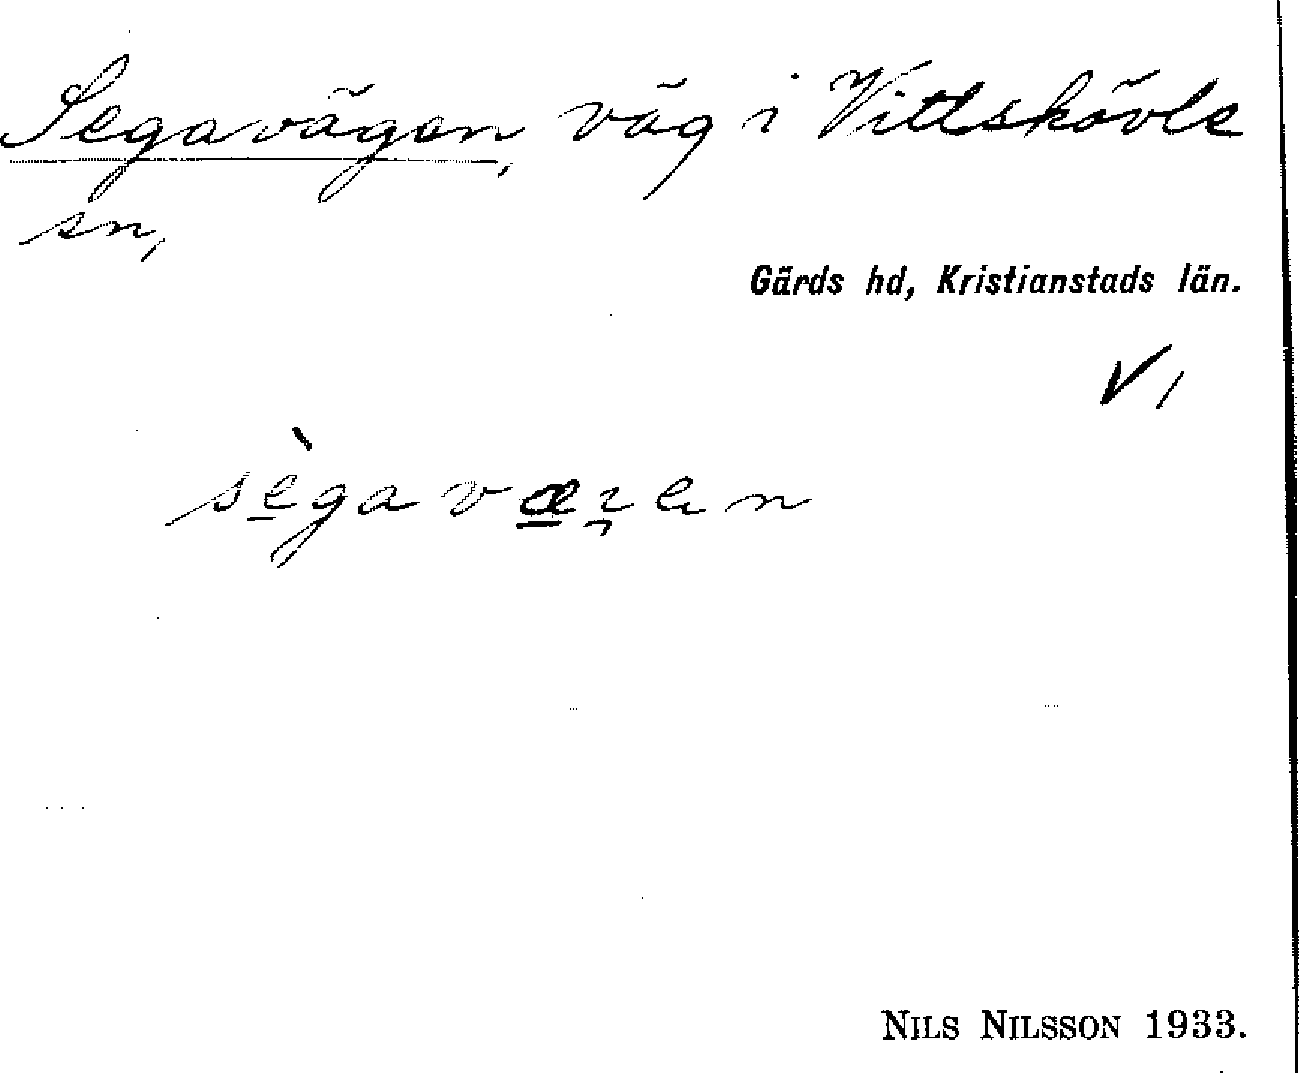 Segavägen, väg i Vittskövle
sn,
Gärds hd, Kristianstads län.
V,
sègavæɿen
NILS NILSSON 1933.